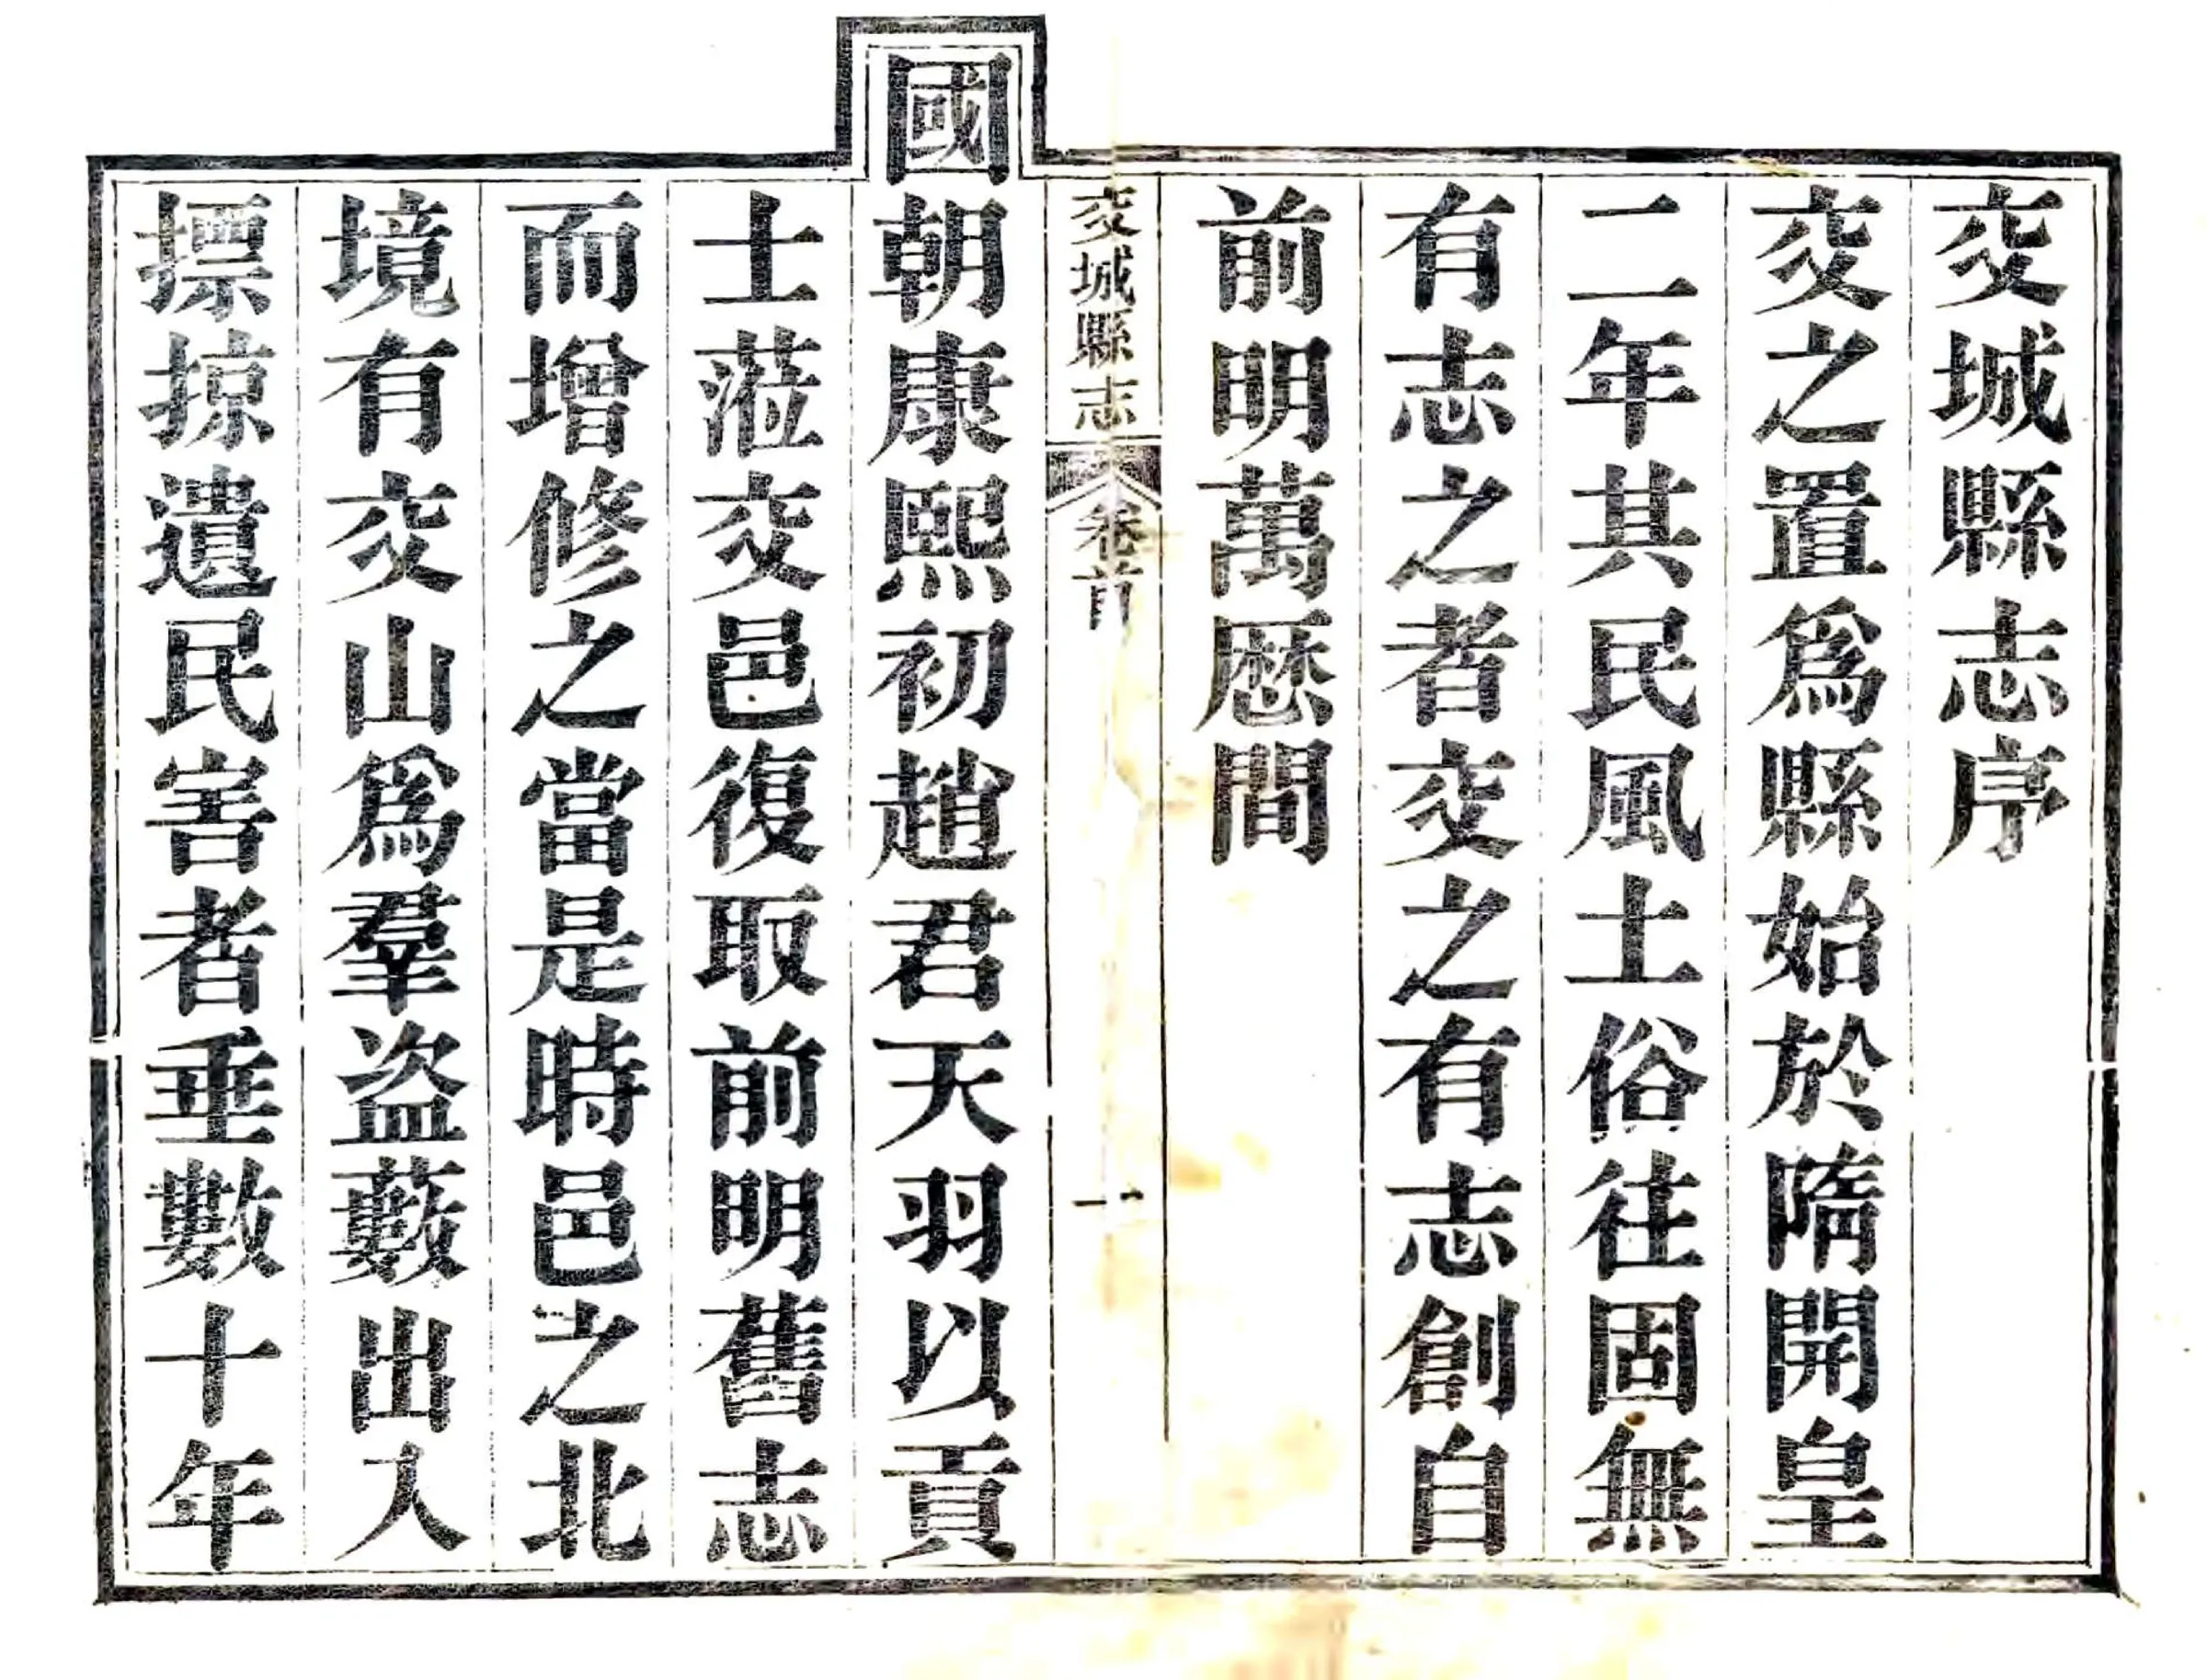 交城縣志序
交之置爲縣始於隋開皇
二年其民風土俗往固無
有志之者交之有志創自
前明萬厯間
交城縣志 卷首 一
國朝康熙初趙君天羽以貢
士蒞交邑復取前明舊志
而增修之當是時邑之北
境有交山爲羣盜藪出入
摽掠遺民害者垂數十年